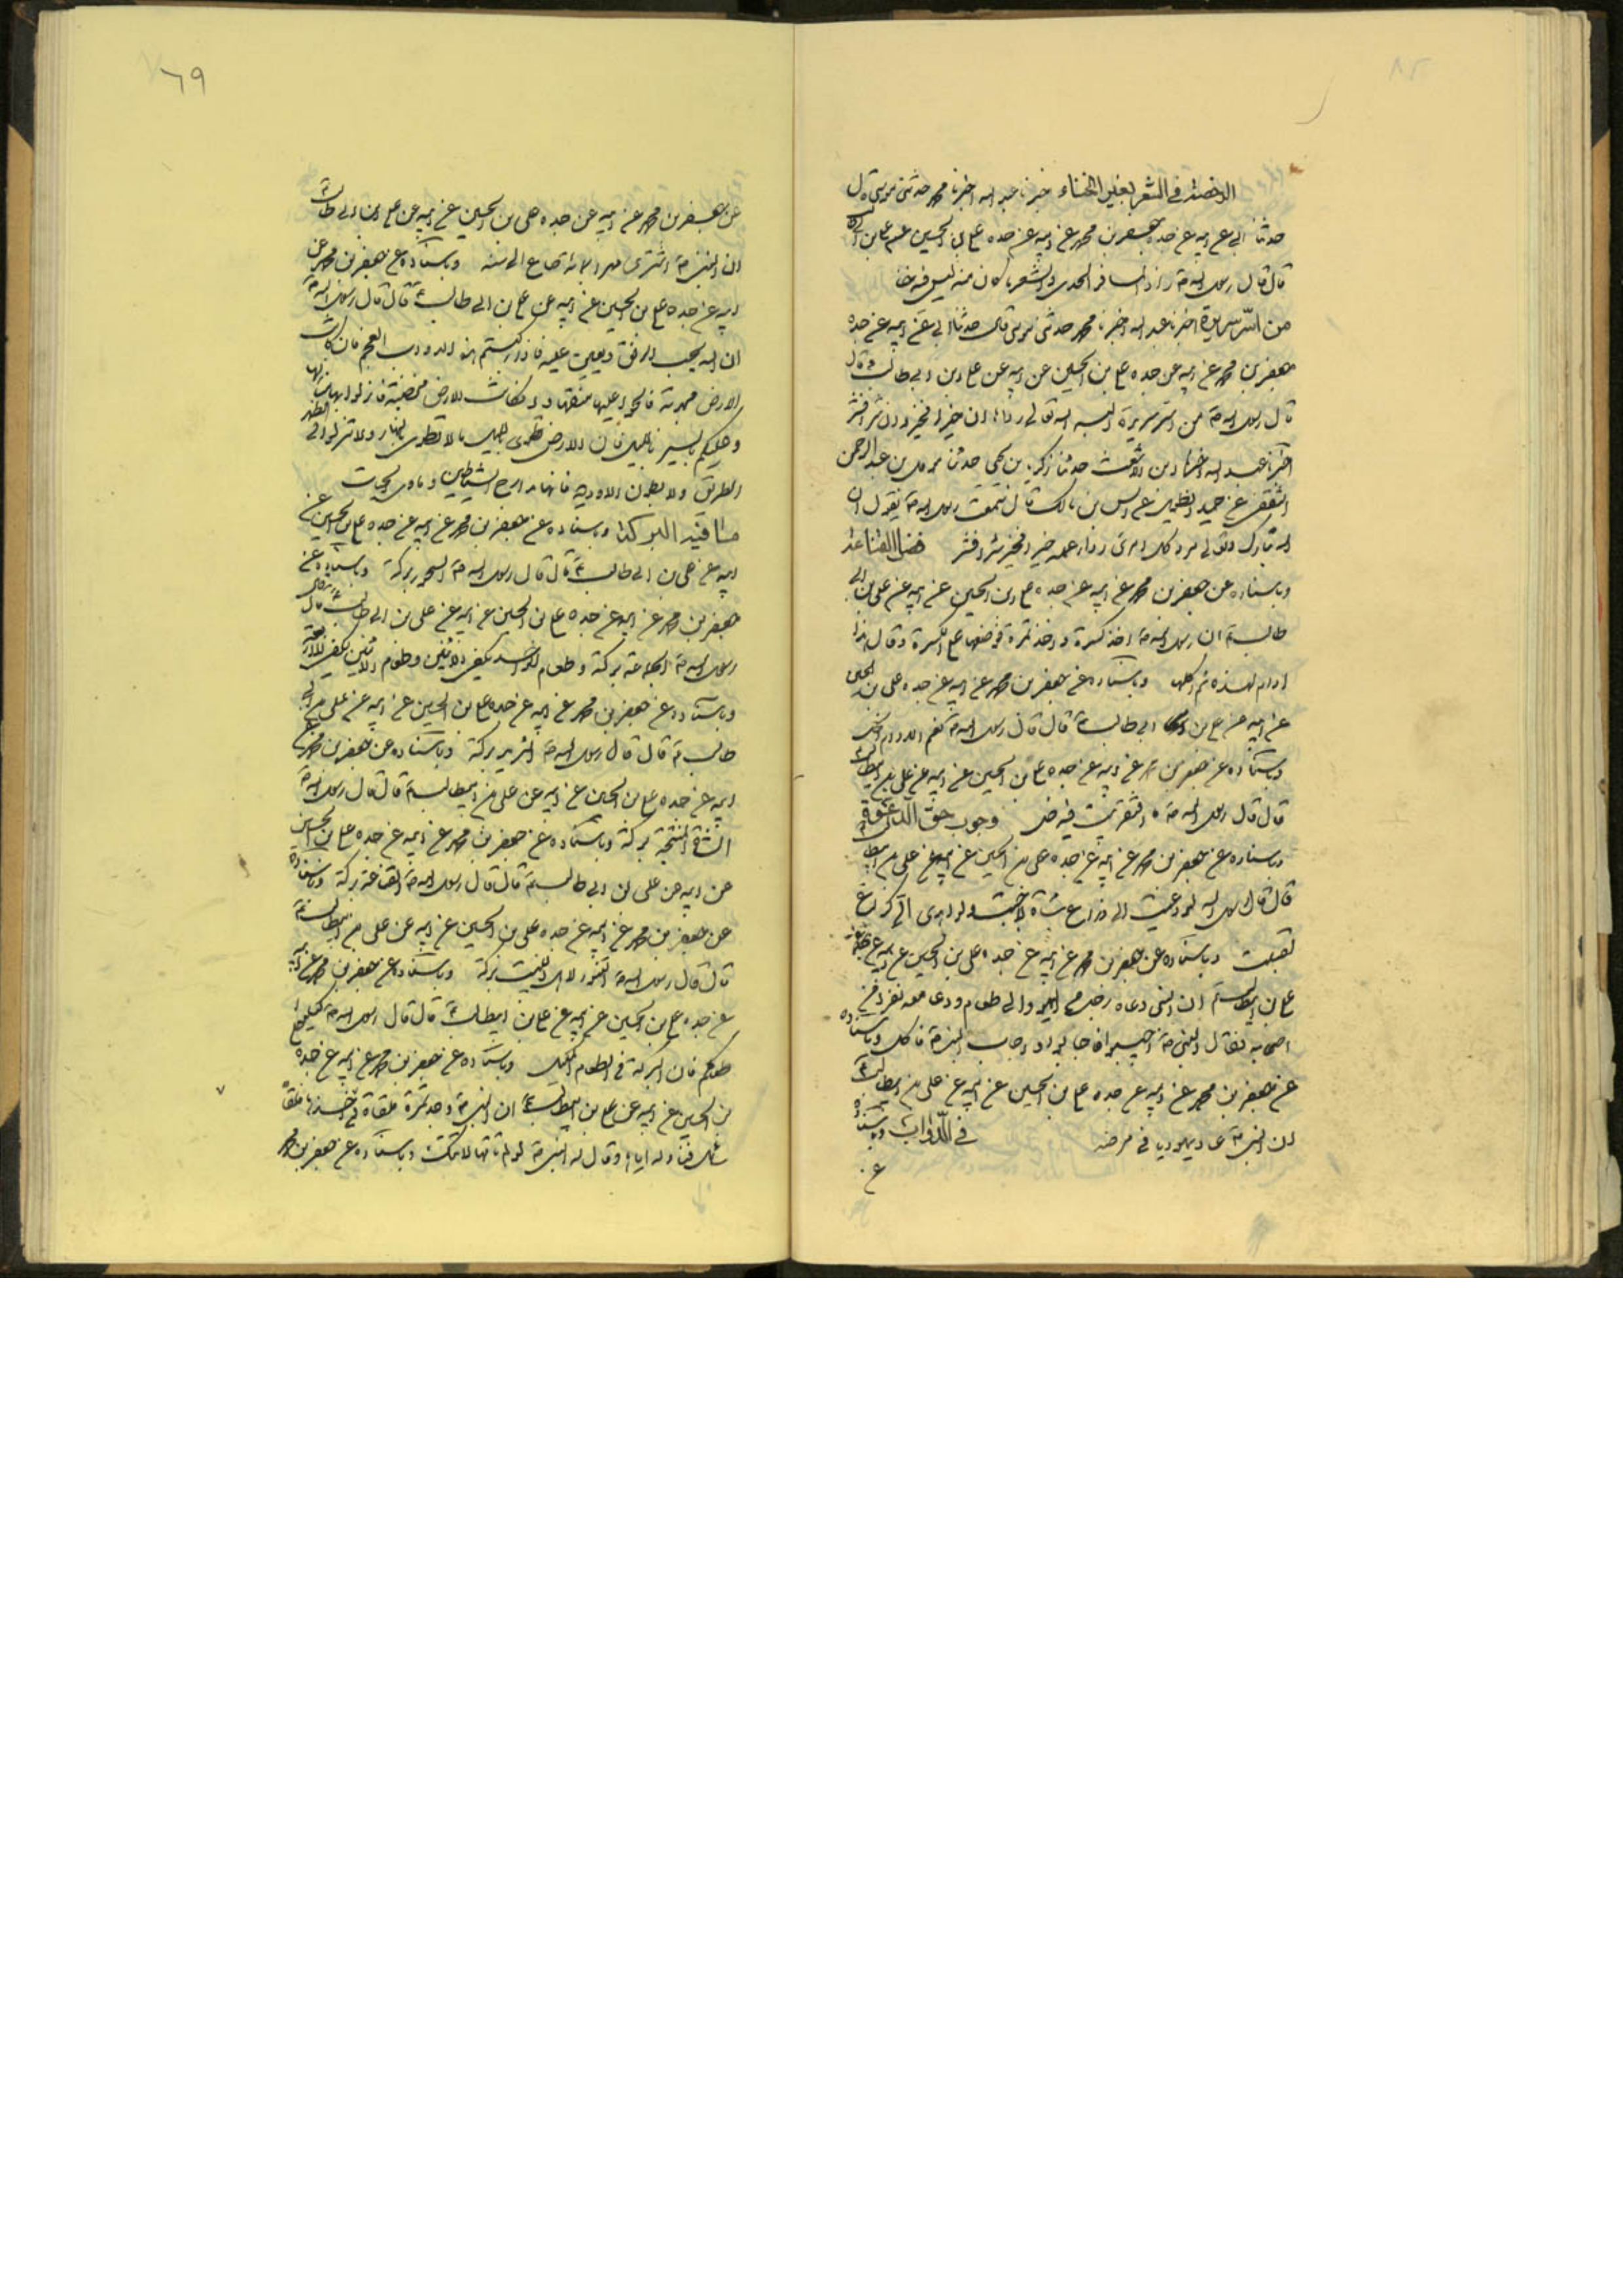 الرخصة في الشعر بغير الخناء اخبرنا عبد الله اخبرنا محمد حدثني موسى قال
حدثنا ابي عن ابيه عن جده جعفر بن محمد عن ابيه عن جده علي بن الحسين عن
قال قال رسول الله ص زاد المسافر الحدى والشعر ما كان منه ليس فيه خنا
من اسر سريرة اخبرنا عبد الله اخبرنا محمد حدثني موسى قال حدثنا ابي عن ابيه عن جده
جعفر بن محمد عن ابيه عن جده علي بن الحسين عن ابيه عن علي بن ابي طالب ع قال
قال رسول الله ص من اسر سريرة البسه الله تعالى رداها ان خير فخير وان شر فشر
اخبرنا عبد الله اخبرنا بن الاشعث حدثنا زكريا بن يحيى حدثنا بن عبد الرحمن
الثقفي عن حميد الطويل عن انس بن مالك قال سمعت رسول الله ص يقول ان
الله تبارك وتعالى كل امرئ رداء عمله خير فخير شر فشر فضل القناعة
وباسناده عن جعفر بن محمد عن ابيه عن جده علي بن الحسين عن ابيه عن علي بن ابي
طالب ع ان رسول الله ص اخذ كسرة واخذ تمرة فوضعها على الكسرة وقال هذا
ادام لهذه ثم اكلها وباسناده عن جعفر بن محمد عن ابيه عن جده علي بن الحسين
عن ابيه عن علي بن ابي طالب ع قال قال رسول الله ص نعم الادام الخل
وباسناده عن جعفر بن محمد عن ابيه عن جده علي بن الحسين عن ابيه عن علي بن ابيطالب ع
قال قال رسول الله ص ما افتقر بيت فيه خل وجوب حق الداعي
وباسناده عن جعفر بن محمد عن ابيه عن جده علي بن الحسين عن ابيه عن علي بن ابيطالب
قال قال رسول الله لو دعيت الى ذراع شاة لاجبت ولو اهدى الي كراع
لقبلت وباسناده عن جعفر بن محمد عن ابيه عن جده علي بن الحسين عن ابيه عن
علي بن ابيطالب ع ان النبي دعاه رجل من اليهود الى طعام ودعا معه نفرا من
اصحابه فقال النبي ص اجيبوا فاجابوا واجاب النبي ص فاكل وباسناده
عن جعفر بن محمد عن ابيه عن جده علي بن الحسين عن ابيه عن علي بن ابيطالب ع
ان النبي ص عاد يهوديا في مرضه في الدواب وباسناده
ع
٦٩
عن جعفر بن محمد عن ابيه عن جده علي بن الحسين عن ابيه عن علي بن ابي طالب ع
ان النبي ص اشترى صاع الى سنه وباسناده عن جعفر بن محمد عن
ابيه عن جده علي بن الحسين عن ابيه عن علي بن ابي طالب ع قال قال رسول الله ص
ان الله يحب الرفق ويعين عليه فاذا ركبتم هذه الدواب العجم فان كانت
الارض مجدبة فالحوا عليها بنقيها وان كانت الارض مخصبة فانزلوا بها منازلها
وعليكم بالسير بالليل فان الارض تطوى بالليل ما لا تطوى بالنهار ولا تنزلوا في ظهر
الطريق ولا بطون الاودية فانها مدارج الشياطين وماوى الحيات
ما فيه البركة وباسناده عن جعفر بن محمد عن ابيه عن جده علي بن الحسين عن
ابيه عن علي بن ابي طالب ع قال قال رسول الله ص السحور بركة وباسناده عن
جعفر بن محمد عن ابيه عن جده علي بن الحسين عن ابيه عن علي بن ابي طالب ع قال قال
رسول الله ص الجماعة بركة وطعام الواحد يكفي الاثنين وطعام الاثنين يكفي الاربعة
وباسناده عن جعفر بن محمد عن ابيه عن جده علي بن الحسين عن ابيه عن علي بن ابي
طالب ع قال قال رسول الله ص الثريد بركة وباسناده عن جعفر بن محمد عن
ابيه عن جده علي بن الحسين عن ابيه عن علي بن ابيطالب ع قال قال رسول الله ص
الشاة المنتجة بركة وباسناده عن جعفر بن محمد عن ابيه عن جده علي بن الحسين
عن ابيه عن علي بن ابي طالب ع قال قال رسول الله ص القناعة بركة وباسناده
عن جعفر بن محمد عن ابيه عن جده علي بن الحسين عن ابيه عن علي بن ابيطالب ع
قال قال رسول الله ص التمور لاهل البيت بركة وباسناده عن جعفر بن محمد عن ابيه
عن جده علي بن الحسين عن ابيه عن علي بن ابيطالب ع قال قال رسول الله ص كيلوا
طعامكم فان البركة في الطعام المكيل وباسناده عن جعفر بن محمد عن ابيه عن جده
بن الحسين عن ابيه عن علي بن ابيطالب ع ان النبي ص وجد تمرة ملقاة
سائل فناوله اياها وقال له النبي ص لو لم تاتها لاتتك وباسناده عن جعفر بن محمد